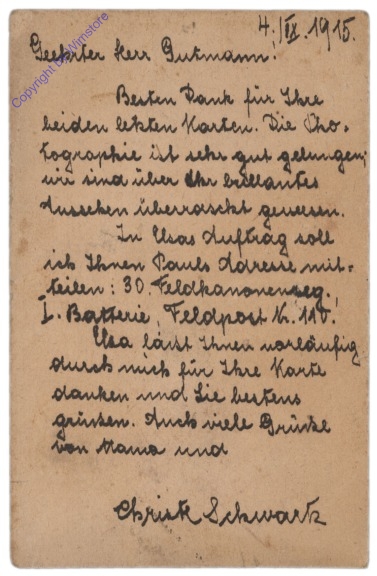 4./IX. 1915.
Geehrter Herr Gutmann!
Besten Dank für Ihre
beiden letzten Karten. Die Pho-
tographie ist sehr gut gelungen;
wir sind über Ihr brillantes
Aussehen überrascht gewesen.
In Elsas Auftrag soll
ich Ihnen Pauls Adresse mit-
teilen: 30. Feldkanonenreg.,
I. Batterie, Feldpost Nr. 110.
Elsa läßt Ihnen vorläufig
durch mich für Ihre Karte
danken und Sie bestens
grüssen. Auch viele Grüße
von Mama und
Schwartz
Copyright by Wimstore